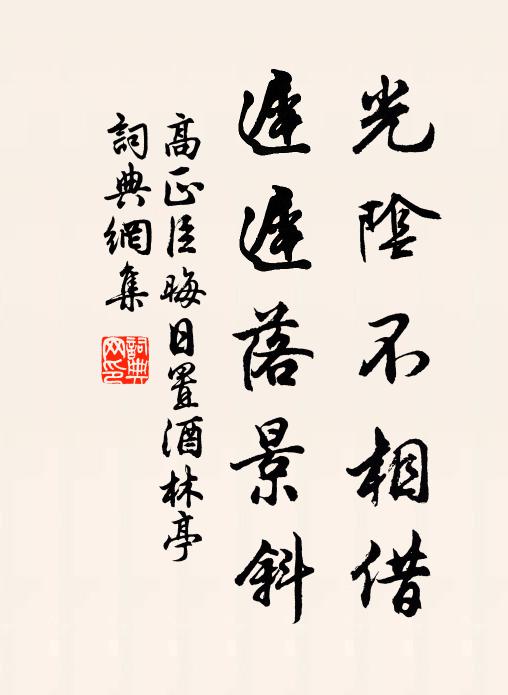 光陰不相借
遲遲落景斜
高正臣晦日置酒林亭
詞典網集
詞典
网印